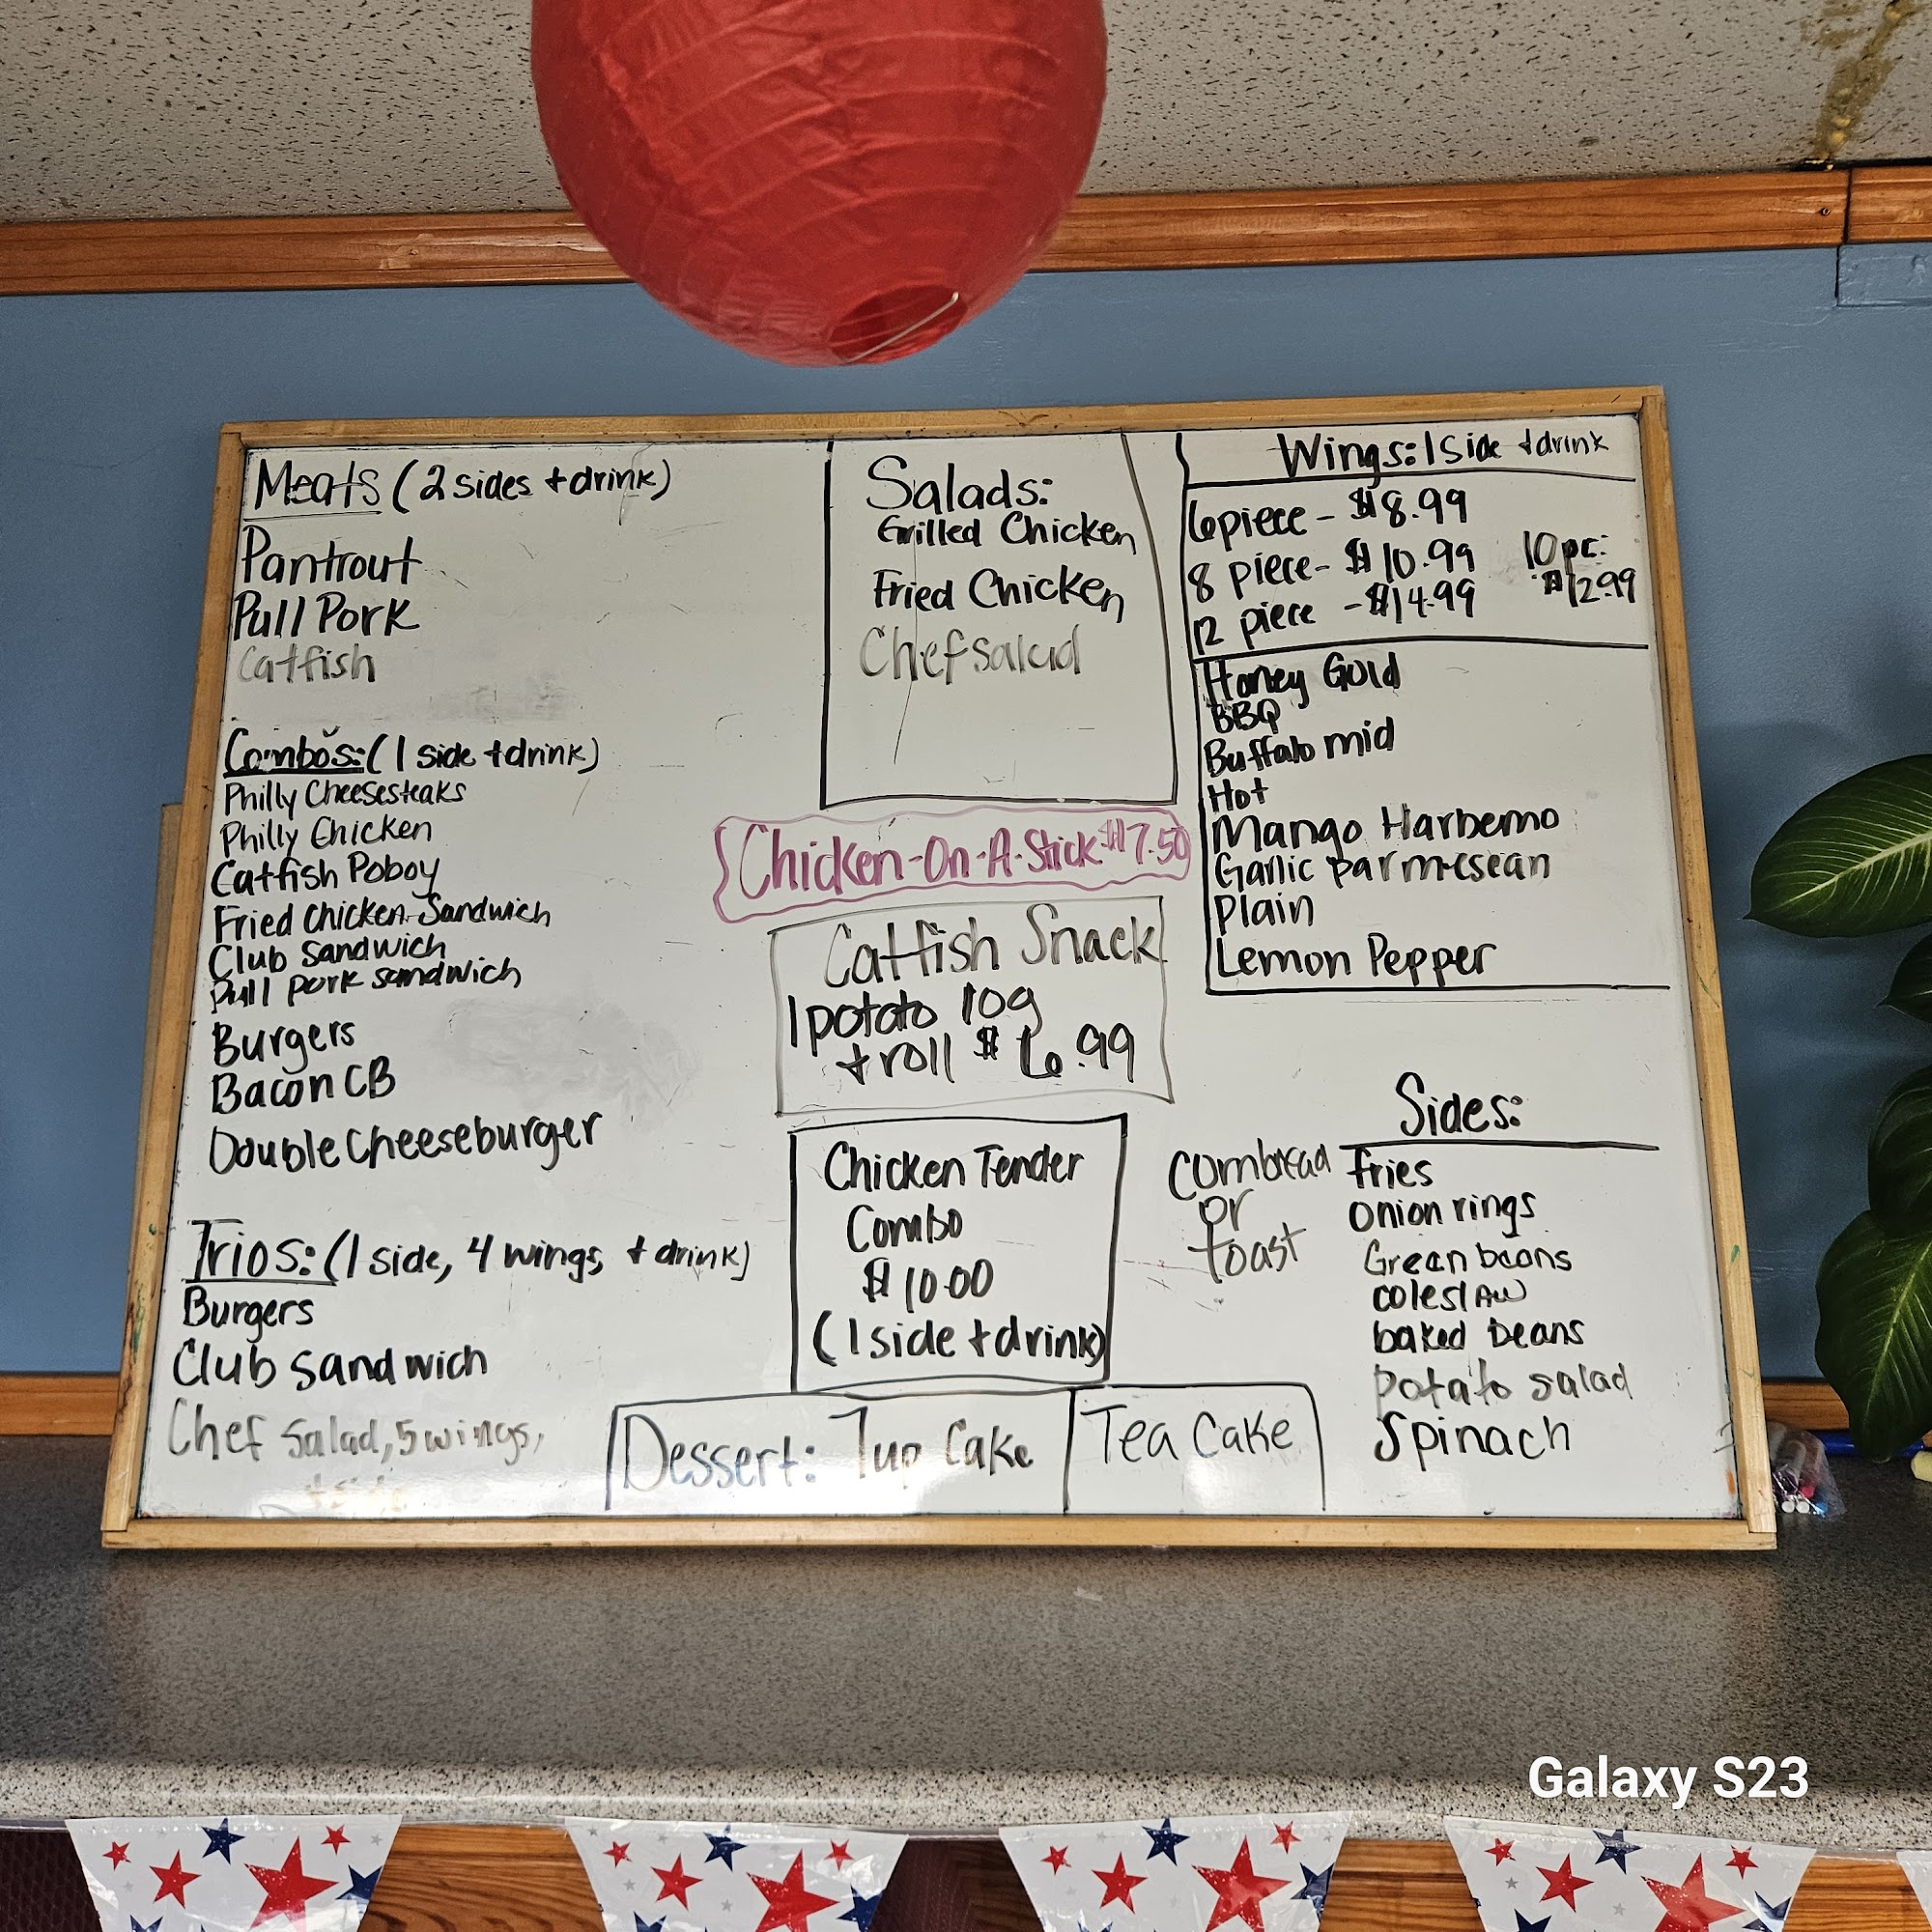 Meats (2 sides + drink)
Pantrout
Pull Pork
Catfish
Combos: (1 side + drink)
Philly Cheesesteaks
Philly Chicken
Catfish Poboy
Fried Chicken Sandwich
Club Sandwich
Pull pork sandwich
Burgers
Bacon CB
Double Cheeseburger
Trios: (1 side, 4 wings, + drink)
Burgers
Club Sandwich
Chef Salad, 5 wings,
+ side
Salads:
Grilled Chicken
Fried Chicken
Chef salad
Chicken-On-A-Stick $7.50
Catfish Snack
1 potato log
+ roll $6.99
Chicken Tender
Combo
$10.00
(1 side + drink)
Dessert: 7up Cake
Tea Cake
Wings: 1 Side + drink
6 piece - $8.99
8 piece - $10.99
12 piece - $14.99
10 pc:
$12.99
Honey Gold
BBQ
Buffalo mid
Hot
Mango Harbemo
Garlic parmesean
Plain
Lemon Pepper
Sides:
Cornbread
or
toast
Fries
onion rings
Green beans
coleslaw
baked beans
potato salad
Spinach
Galaxy S23